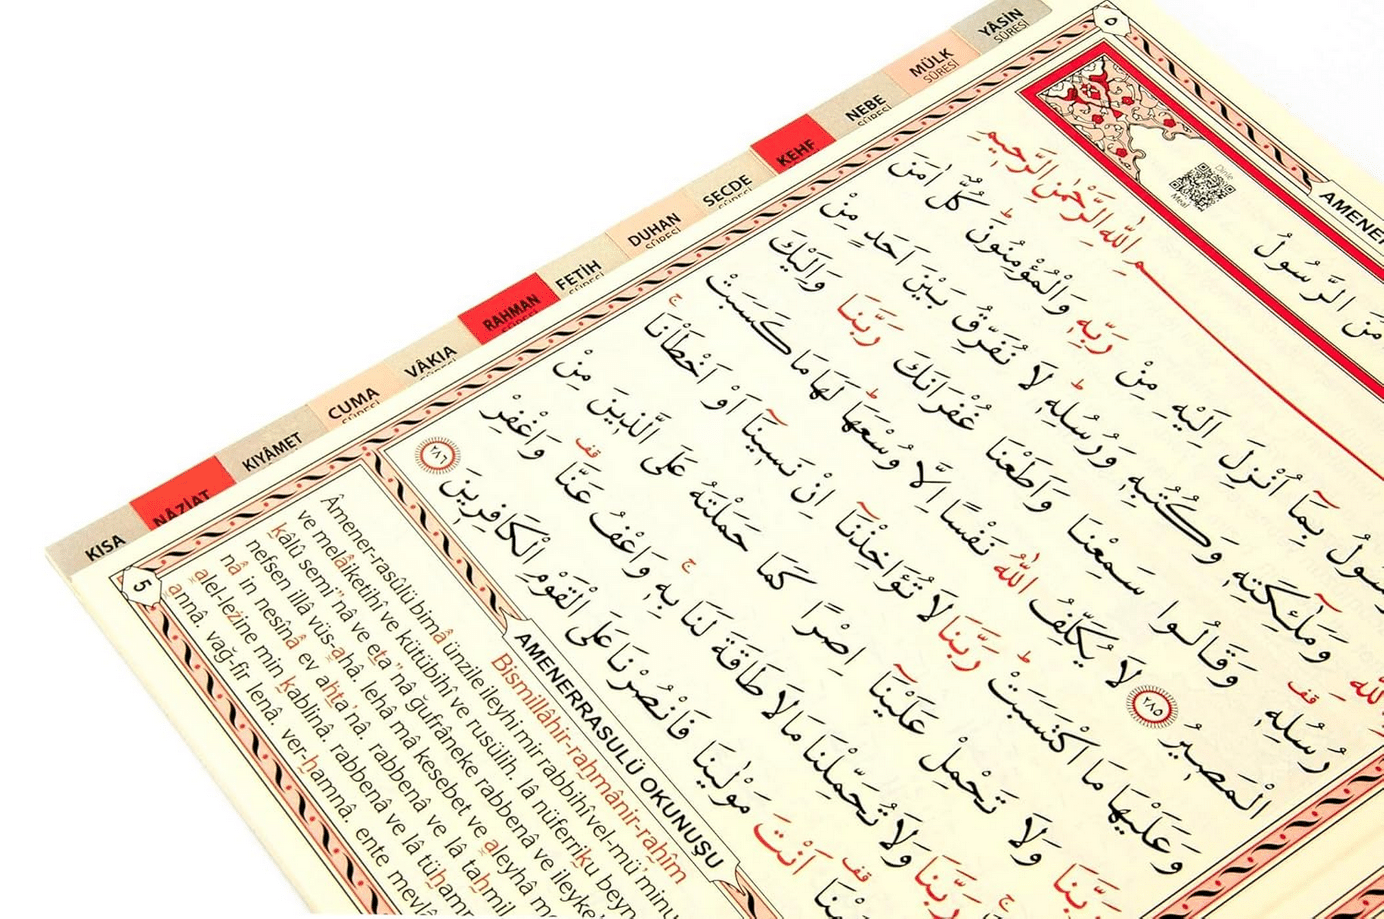 YÂSİN SÛRESİ
MÜLK SÛRESİ
NEBE SÛRESİ
KEHF
SECDE SÛRESİ
DUHAN SÛRESİ
FETİH SÛRESİ
RAHMAN SÛRESİ
VÂKIA SÛRESİ
CUMA SÛRESİ
KIYÂMET
NÂZİAT
KISA
٥
AMENER
Dinle
Meal
الرَّسُولُ
اللّٰهِ الرَّحْمٰنِ الرَّحِيمِ
بِمَٓا اُنْزِلَ اِلَيْهِ مِنْ رَبِّهٖ وَالْمُؤْمِنُونَؕ كُلٌّ اٰمَنَ
وَمَلٰٓئِكَتِهٖ وَكُتُبِهٖ وَرُسُلِهٖؕ لَا نُفَرِّقُ بَيْنَ اَحَدٍ مِنْ
رُسُلِهٖ قف وَقَالُوا سَمِعْنَا وَاَطَعْنَا غُفْرَانَكَ رَبَّنَا وَاِلَيْكَ
الْمَصِيرُ ٢٨٥ لَا يُكَلِّفُ اللّٰهُ نَفْسًا اِلَّا وُسْعَهَاؕ لَهَا مَا كَسَبَتْ
وَعَلَيْهَا مَا اكْتَسَبَتْؕ رَبَّنَا لَا تُؤَاخِذْنَٓا اِنْ نَسِينَٓا اَوْ اَخْطَأْنَاۚ
رَبَّنَا وَلَا تَحْمِلْ عَلَيْنَٓا اِصْرًا كَمَا حَمَلْتَهُ عَلَى الَّذِينَ مِنْ
رَبَّنَا وَلَا تُحَمِّلْنَا مَا لَا طَاقَةَ لَنَا بِهٖۚ وَاعْفُ عَنَّا قف وَاغْفِرْ
اَنْتَ مَوْلٰينَا فَانْصُرْنَا عَلَى الْقَوْمِ الْكَافِرِينَ ٢٨٦
5
AMENERRASULÜ OKUNUŞU
Bismillâhir-rahmânir-rahîm
Âmener-rasûlü bimâ ünzile ileyhi mir rabbihî vel-mü'minu
ve melâiketihî ve kütübihî ve rusülih. lâ nüferriku beyn
kâlû semi'nâ ve eta'nâ ğufrâneke rabbenâ ve ileyke
nefsen illâ vüs-ahâ. lehâ mâ kesebet ve aleyhâ m
nâ in nesînâ ev ahta'nâ. rabbenâ ve lâ tahmil
alel-lezîne min kablinâ. rabbenâ ve lâ tüham
annâ. vağ-fir lenâ. ver-hamnâ. ente mevlâ